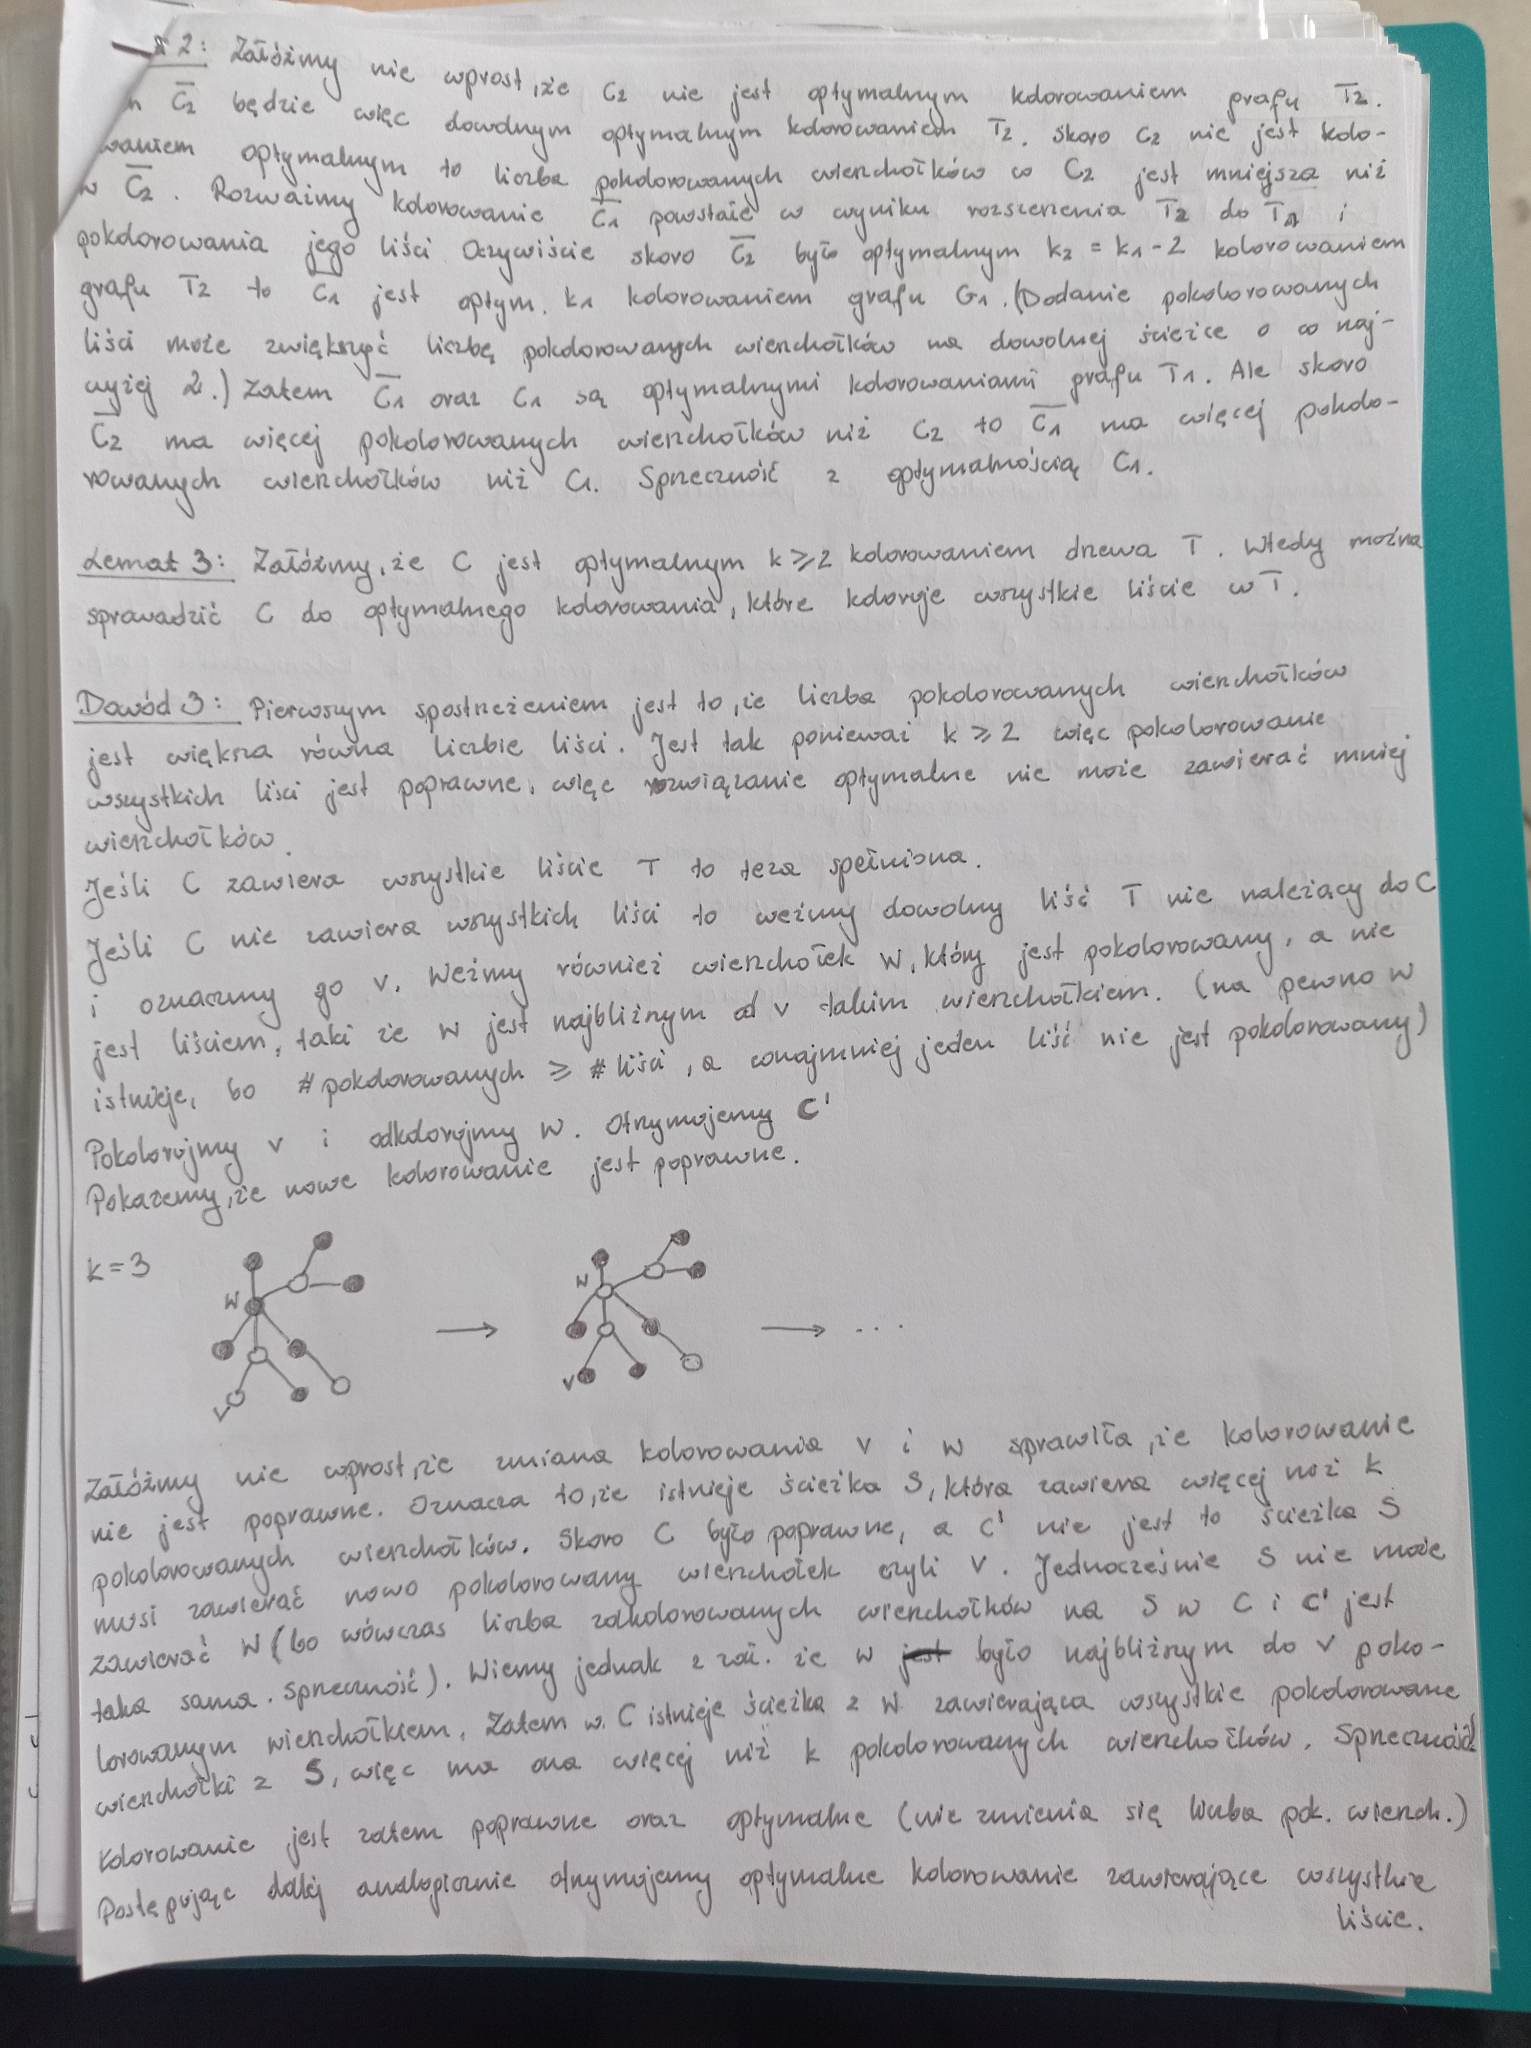 2: Załóżmy nie wprost, że C2 nie jest optymalnym kolorowaniem grafu T2.
C2 będzie więc dowolnym optymalnym kolorowaniem T2. Skoro C2 nie jest kolo-
waniem optymalnym to liczba pokolorowanych wierzchołków w C2 jest mniejsza niż
w C2. Rozważmy kolorowanie C1 powstałe w wyniku rozszerzenia T2 do T1 i
pokolorowania jego liści. Oczywiście skoro C2 było optymalnym k2 = k1 - 2 kolorowaniem
grafu T2 to C1 jest optym. k1 kolorowaniem grafu G1. (Dodanie pokolorowanych
liści może zwiększyć liczbę pokolorowanych wierzchołków na dowolnej ścieżce o co naj-
wyżej 2.) Zatem C1 oraz C1 są optymalnymi kolorowaniami grafu T1. Ale skoro
C2 ma więcej pokolorowanych wierzchołków niż C2 to C1 ma więcej pokolo-
rowanych wierzchołków niż C1. Sprzeczność z optymalnością C1.
Lemat 3: Załóżmy, że C jest optymalnym k ≥ 2 kolorowaniem drzewa T. Wtedy można
sprowadzić C do optymalnego kolorowania, które koloruje wszystkie liście w T.
Dowód 3: Pierwszym spostrzeżeniem jest to, że liczba pokolorowanych wierzchołków
jest większa równa liczbie liści. Jest tak ponieważ k ≥ 2 więc pokolorowanie
wszystkich liści jest poprawne, więc rozwiązanie optymalne nie może zawierać mniej
wierzchołków.
Jeśli C zawiera wszystkie liście T to teza spełniona.
Jeśli C nie zawiera wszystkich liści to weźmy dowolny liść T nie należący do C
i oznaczmy go v. Weźmy również wierzchołek w, który jest pokolorowany, a nie
jest liściem, taki że w jest najbliższym od v takim wierzchołkiem. (na pewno w
istnieje, bo # pokolorowanych ≥ # liści, a conajmniej jeden liść nie jest pokolorowany)
Pokolorujmy v i odkolorujmy w. Otrzymujemy C'
Pokażemy, że nowe kolorowanie jest poprawne.
k = 3
W
W
...
v
v
Załóżmy nie wprost, że zmiana kolorowania v i w sprawiła, że kolorowanie
nie jest poprawne. Oznacza to, że istnieje ścieżka S, która zawiera więcej niż k
pokolorowanych wierzchołków. Skoro C było poprawne, a C' nie jest to ścieżka S
musi zawierać nowo pokolorowany wierzchołek czyli v. Jednocześnie S nie może
zawierać w (bo wówczas liczba zakolorowanych wierzchołków na S w C i C' jest
taka sama. Sprzeczność). Wiemy jednak z zał. że w było najbliższym do v poko-
lorowanym wierzchołkiem. Zatem w C istnieje ścieżka z w zawierająca wszystkie pokolorowane
wierzchołki z S, więc ma ona więcej niż k pokolorowanych wierzchołków. Sprzeczność
Kolorowanie jest zatem poprawne oraz optymalne (nie zmienia się liczba pok. wierzch.)
Postępując dalej analogicznie otrzymujemy optymalne kolorowanie zawierające wszystkie
liście.